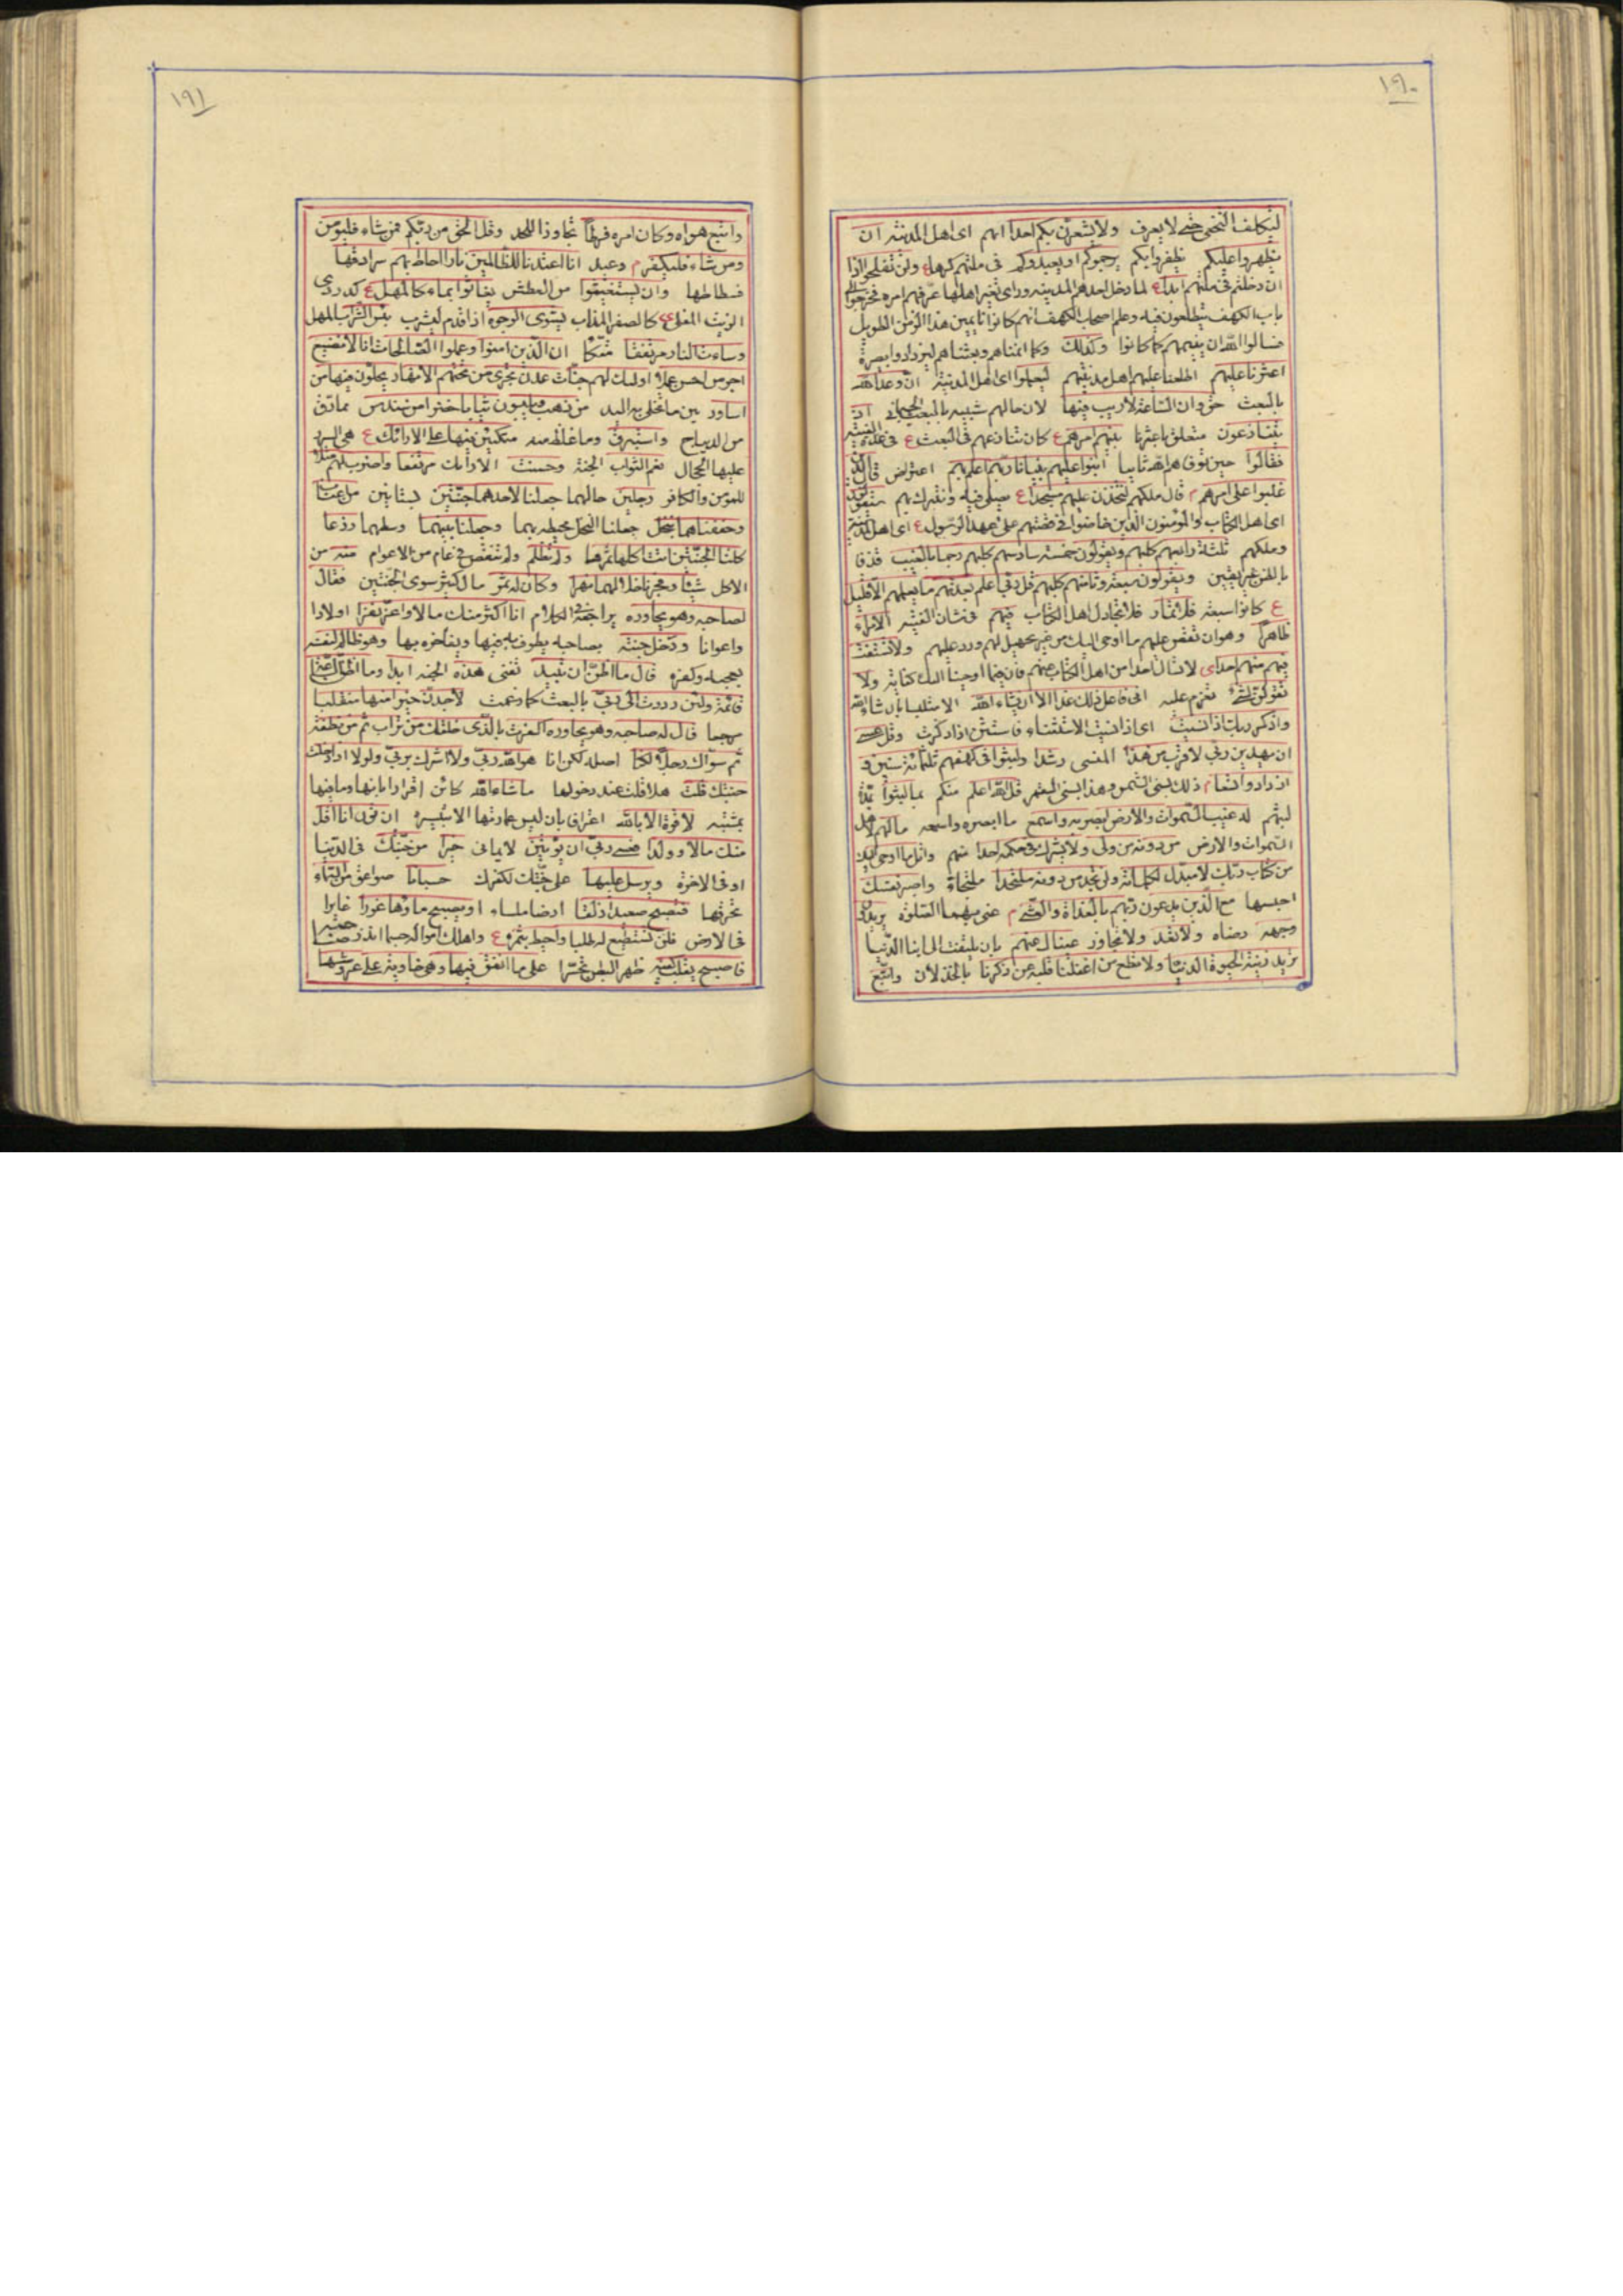 ١٩٠
ليكلف التخفي حتى لا يعرف ولا يشعرن بكم احدا انهم اى اهل المدينة ان
يظهروا عليكم يظفروا بكم يرجموكم او يعيدوكم فى ملتهم كرها ع ولن تفلحوا اذا
ان دخلتم فى ملتهم ابدا ع لما دخل احدهم المدينه وراى تغير اهلها عرفهم امره فخرجوا الى
باب الكهف يطلعون فيه وعلم اصحاب الكهف انهم كانوا نايمين هذا الزمن الطويل
فسالوا الله ان يعيدهم كما كانوا وكذلك وكما انمناهم وبعثناهم ليزدادوا بصيرة
اعثرنا عليهم اطلعنا عليهم اهل مدينتهم ليعلموا اى اهل المدينة ان وعد الله
بالبعث حق وان الساعة لا ريب فيها لان حالهم شبيه بالبعث الجسمانى اذ
يتنازعون متعلق باعثرنا بينهم امرهم ع كان تنازعهم فى البعث ع فى عدد الفتية
فقالوا حين توفاهم الله ثانيا ابنوا عليهم بنيانا ربهم اعلم بهم اعتراض قال الذين
غلبوا على امرهم م قال ملكهم لنتخذن عليهم مسجدا ع يصلى فيه ونتبرك بهم سيقولون
اى اهل الكتاب والمؤمنون الذين خاضوا فى قصتهم على عهد الرسول ع اى اهل المدينة
وملكهم ثلثة رابعهم كلبهم ويقولون خمسة سادسهم كلبهم رجما بالغيب قذفا
بالظن غير يقين ويقولون سبعة وثامنهم كلبهم قل ربى اعلم بعدتهم ما يعلمهم الا قليل
ع كانوا سبعة فلا تمار فلا تجادل اهل الكتاب فيهم فى شان الفتية الا مراء
ظاهرا وهو ان تقص عليهم ما اوحى اليك من غير تجهيل لهم ورد عليهم ولا تستفت
فيهم منهم احدا لا تسال احدا من اهل الكتاب عنهم فان فيما اوحينا اليك كفاية ولا
تقولن لشىء تعزم عليه انى فاعل ذلك غدا الا ان يشاء الله الا متلبسا بان شاء الله
واذكر ربك اذا نسيت اى اذا نسيت الاستثناء فاستثن اذا ذكرت وقل عسى
ان يهدين ربى لاقرب من هذا المنسى رشدا ولبثوا فى كهفهم ثلثمائة سنين و
ازدادوا تسعا م ذلك بسنى الشمس وهذا بسنى القمر قل الله اعلم منكم بما لبثوا بمدة
لبثهم له غيب السموات والارض ابصر به واسمع ما ابصره واسمعه ما لهم لاهل
السموات والارض من دونه من ولى ولا يشرك فى حكمه احدا منهم واتل ما اوحى اليك
من كتاب ربك لا مبدل لكلماته ولن تجد من دونه ملتحدا ملتجاء واصبر نفسك
احبسها مع الذين يدعون ربهم بالغداة والعشى م عنى بهما الصلوة يريدون
وجهه رضاه ولا تعد ولا تجاوز عيناك عنهم بان يلتفت الى ابنا الدنيا
تريد زينة الحيوة الدنيا ولا تطع من اغفلنا قلبه عن ذكرنا بالخذلان واتبع
١٩١
واتبع هواه وكان امره فرطا تجاوزا للحد وقل الحق من ربكم فمن شاء فليؤمن
ومن شاء فليكفر م وعيد انا اعتدنا للظالمين نارا احاط بهم سرادقها
فسطاطها وان يستغيثوا من العطش يغاثوا بماء كالمهل ع كدردى
الزيت المغلى ع كالصفر المذاب يشوى الوجوه اذا قدم ليشرب بئس الشراب المهل
وساءت النار مرتفقا متكأ ان الذين امنوا وعملوا الصالحات انا لا نضيع
اجر من احسن عملا اولئك لهم جنات عدن تجرى من تحتهم الانهار يحلون فيها من
اساور بين ما تحلى به اليد من ذهب ويلبسون ثيابا خضرا من سندس مما رق
من الديباج واستبرق وما غلظ منه متكئين فيها على الارائك ع هى السرر
عليها الحجال نعم الثواب الجنة وحسنت الارائك مرتفقا واضرب لهم مثلا
للمؤمن والكافر رجلين حالهما جعلنا لاحدهما جنتين بستانين من اعناب
وحففناهما بنخل جعلنا النخل محيطه بهما وجعلنا بينهما وسطهما زرعا
كلتا الجنتين اتت اكلها ثمرها ولم تظلم ولم تنقص فى عام من الاعوام منه من
الاكل شيئا وفجرنا خلالهما نهرا وكان له ثمر مال كثير سوى الجنتين فقال
لصاحبه وهو يحاوره يراجعه فى الكلام انا اكثر منك مالا واعز نفرا اولادا
واعوانا ودخل جنته بصاحبه يطوف به فيها ويفاخره بها وهو ظالم لنفسه
بعجبه وكفره قال ما اظن ان تبيد تفنى هذه الجنه ابدا وما اظن الساعة
قائمة ولئن رددت الى ربى بالبعث كما زعمت لاجدن خيرا منها منقلبا
مرجعا قال له صاحبه وهو يحاوره اكفرت بالذى خلقك من تراب ثم من نطفة
ثم سواك رجلا لكنا اصله لكن انا هو الله ربى ولا اشرك بربى ولولا اذ دخلت
جنتك قلت هلا قلت عند دخولها ما شاء الله كائن اقرارا بانها وما فيها
بمشيته لا قوة الا بالله اعترافا بان ليس عمارتها الا بتيسيره ان ترن انا اقل
منك مالا وولدا فعسى ربى ان يؤتين لايمانى خيرا من جنتك فى الدنيا
او فى الاخرة ويرسل عليها على جنتك لكفرك حسبانا صواعق من السماء
تحرقها فتصبح صعيدا زلقا ارضا ملساء او يصبح ماؤها غورا غايرا
فى الارض فلن تستطيع له طلبا واحيط بثمره ع واهلك امواله حسبما انذر صاحبه
فاصبح يقلب كفيه ظهر البطن تحسرا على ما انفق فيها وهى خاوية على عروشها